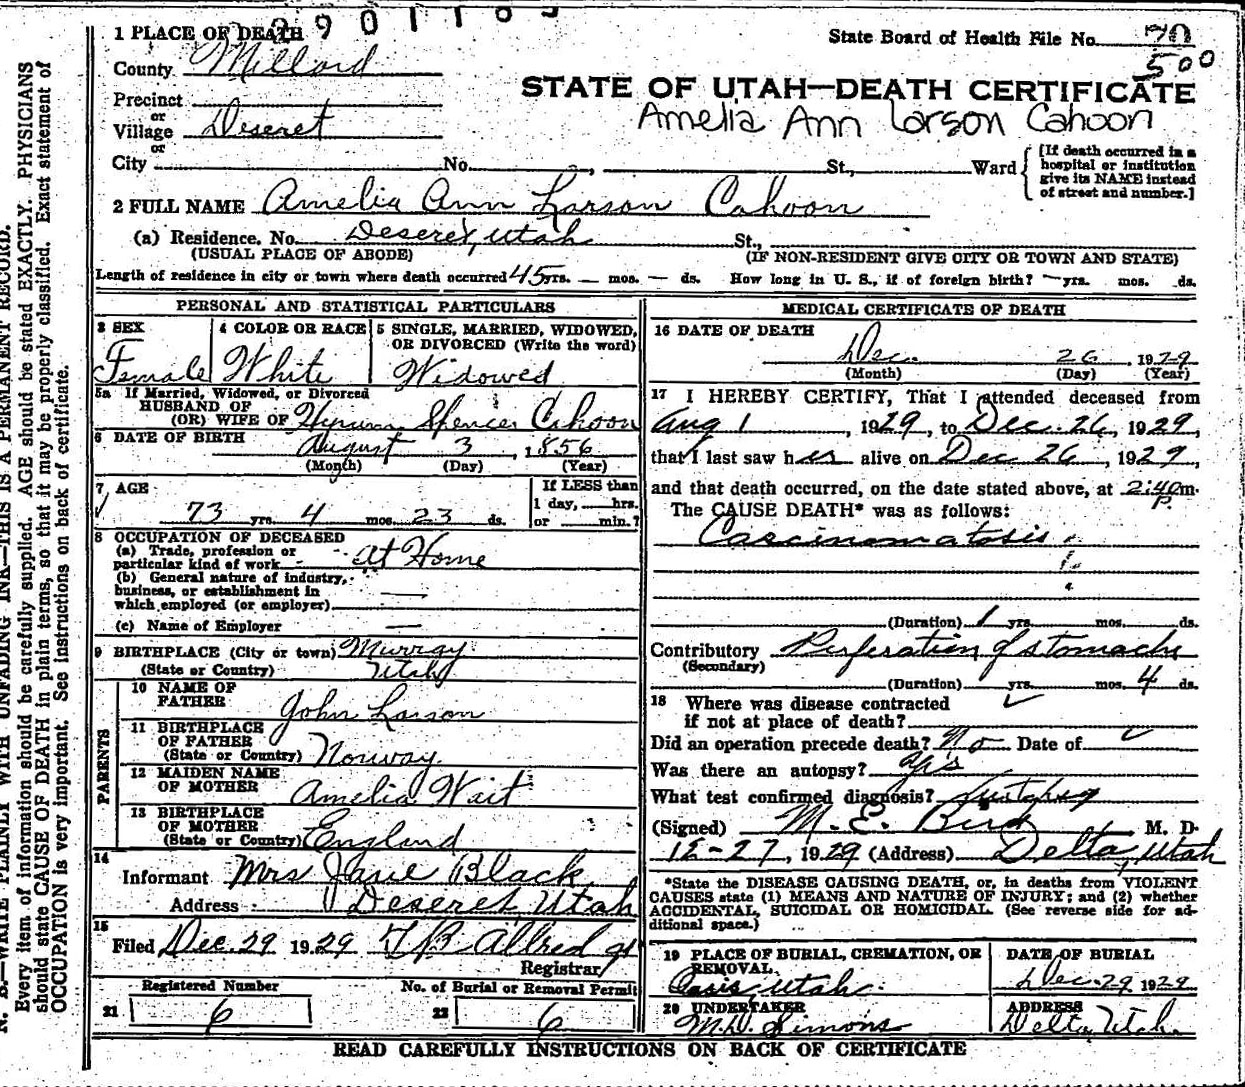 2901103
1 PLACE OF DEATH
State Board of Health File No. 70
500
County Millard
STATE OF UTAH—DEATH CERTIFICATE
Precinct
or
Village Deseret
Amelia Ann Larson Cahoon
or
City No. , St., Ward
[If death occurred in a hospital or institution give its NAME instead of street and number.]
2 FULL NAME Amelia Ann Larson Cahoon
(a) Residence. No. Deseret, Utah St.,
(USUAL PLACE OF ABODE) (IF NON-RESIDENT GIVE CITY OR TOWN AND STATE)
Length of residence in city or town where death occurred 45 yrs. — mos. — ds. How long in U. S., if of foreign birth? — yrs. mos. ds.
PERSONAL AND STATISTICAL PARTICULARS
3 SEX
Female
4 COLOR OR RACE
White
5 SINGLE, MARRIED, WIDOWED, OR DIVORCED (Write the word)
Widowed
5a If Married, Widowed, or Divorced
HUSBAND OF
(OR) WIFE OF Hyrum Spencer Cahoon
6 DATE OF BIRTH August 3, 1856
(Month) (Day) (Year)
7 AGE
73 yrs. 4 mos. 23 ds.
If LESS than
1 day, hrs.
or min.?
8 OCCUPATION OF DECEASED
(a) Trade, profession or
particular kind of work At Home
(b) General nature of industry,
business, or establishment in
which employed (or employer) —
(c) Name of Employer —
9 BIRTHPLACE (City or town) Murray
(State or Country) Utah
PARENTS
10 NAME OF
FATHER John Larson
11 BIRTHPLACE
OF FATHER
(State or Country) Norway.
12 MAIDEN NAME
OF MOTHER Amelia Wait
13 BIRTHPLACE
OF MOTHER
(State or Country) England
14
Informant Mrs Jane Black
Address Deseret Utah
15
Filed Dec. 29 1929
Registrar
Registered Number
21 6
No. of Burial or Removal Permit
22 6
MEDICAL CERTIFICATE OF DEATH
16 DATE OF DEATH
Dec. 26, 1929
(Month) (Day) (Year)
17 I HEREBY CERTIFY, That I attended deceased from
Aug 1, 1929, to Dec. 26, 1929,
that I last saw her alive on Dec 26, 1929,
and that death occurred, on the date stated above, at 2:40 p. m.
The CAUSE DEATH* was as follows:
Carcinomatosis
(Duration) 1 yrs. mos. ds.
Contributory Perforation of stomach
(Secondary)
(Duration) yrs. mos. 4 ds.
18 Where was disease contracted
if not at place of death?
Did an operation precede death? No Date of
Was there an autopsy? yes
What test confirmed diagnosis?
(Signed) M. E. Bird M. D.
12-27, 1929 (Address) Delta, Utah
*State the DISEASE CAUSING DEATH, or, in deaths from VIOLENT
CAUSES state (1) MEANS AND NATURE OF INJURY; and (2) whether
ACCIDENTAL, SUICIDAL OR HOMICIDAL. (See reverse side for ad-
ditional space.)
19 PLACE OF BURIAL, CREMATION, OR
REMOVAL
Oasis, Utah.
DATE OF BURIAL
Dec. 29 1929
20 UNDERTAKER
ADDRESS
Delta, Utah.
READ CAREFULLY INSTRUCTIONS ON BACK OF CERTIFICATE
N. B.—WRITE PLAINLY WITH UNFADING INK—THIS IS A PERMANENT RECORD.
Every item of information should be carefully supplied. AGE should be stated EXACTLY. PHYSICIANS
should state CAUSE OF DEATH in plain terms, so that it may be properly classified. Exact statement of
OCCUPATION is very important. See instructions on back of certificate.